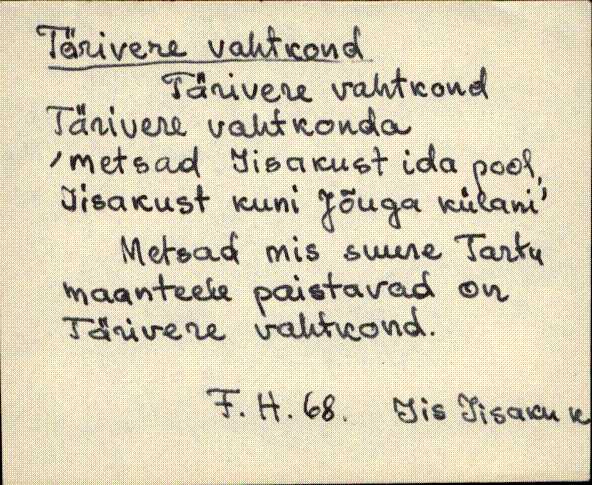 Tärivere vahtkond
Tärivere vahtkond
Tärivere vahtkonda
'metsad Iisakust ida pool,
Iisakust kuni Jõuga külani'
Metsad mis suure Tartu
maanteele paistavad on
Tärivere vahtkond.
F. H. 68. Iis Iisaku k